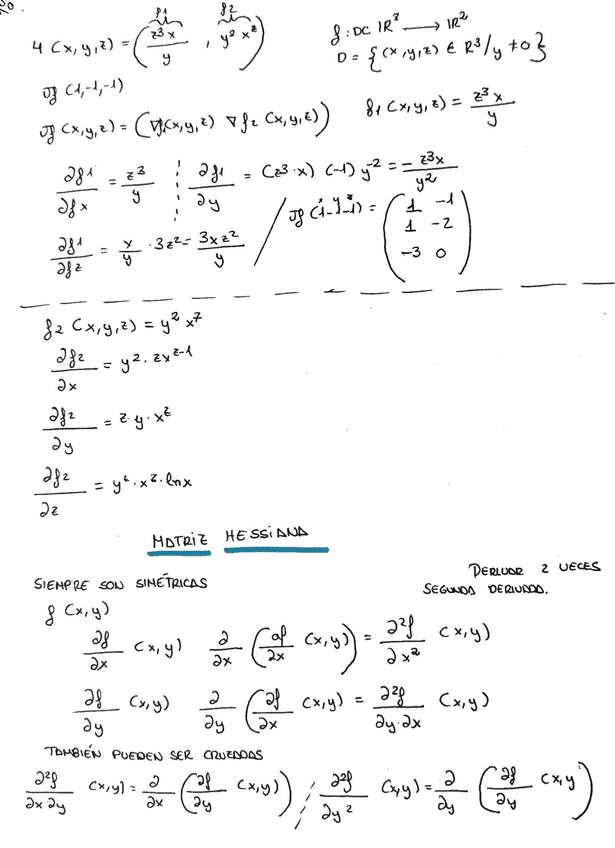 f1 f2
4 (x,y,z) = (z³x/y , y² x^z) f: D⊂ ℝ³ → ℝ²
D = {(x,y,z) ∈ ℝ³/y ≠ 0}
Jf (1,-1,-1)
Jf (x,y,z) = (∇f1(x,y,z) ∇f2 (x,y,z)) f1 (x,y,z) = z³x/y
∂f1/∂fx = z³/y ¦ ∂f1/∂y = (z3·x) (-1) y⁻² = - z³x/y²
∂f1/∂fz = x/y · 3z² = 3xz²/y / Jf (1-1-1) = (1 -1
1 -2
-3 0)
f2 (x,y,z) = y² x^z
∂f2/∂x = y² · zx^z-1
∂f2/∂y = 2·y·x^z
∂f2/∂z = y² · x^z · lnx
MATRIZ HESSIANA
SIEMPRE SON SIMÉTRICAS
DERIVAR 2 VECES
SEGUNDA DERIVADA.
f (x,y)
∂f/∂x (x,y) ∂/∂x (∂f/∂x (x,y)) = ∂²f/∂x² (x,y)
∂f/∂y (x,y) ∂/∂y (∂f/∂x (x,y) = ∂²f/∂y·∂x (x,y)
TAMBIÉN PUEDEN SER CRUZADAS
∂²f/∂x ∂y (x,y) = ∂/∂x (∂f/∂y (x,y)) ¦ ∂²f/∂y² (x,y) = ∂/∂y (∂f/∂y (x,y)